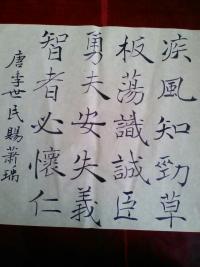 疾風知勁草
板蕩識誠臣
勇夫安失義
智者必懷仁
唐李世民賜蕭瑀